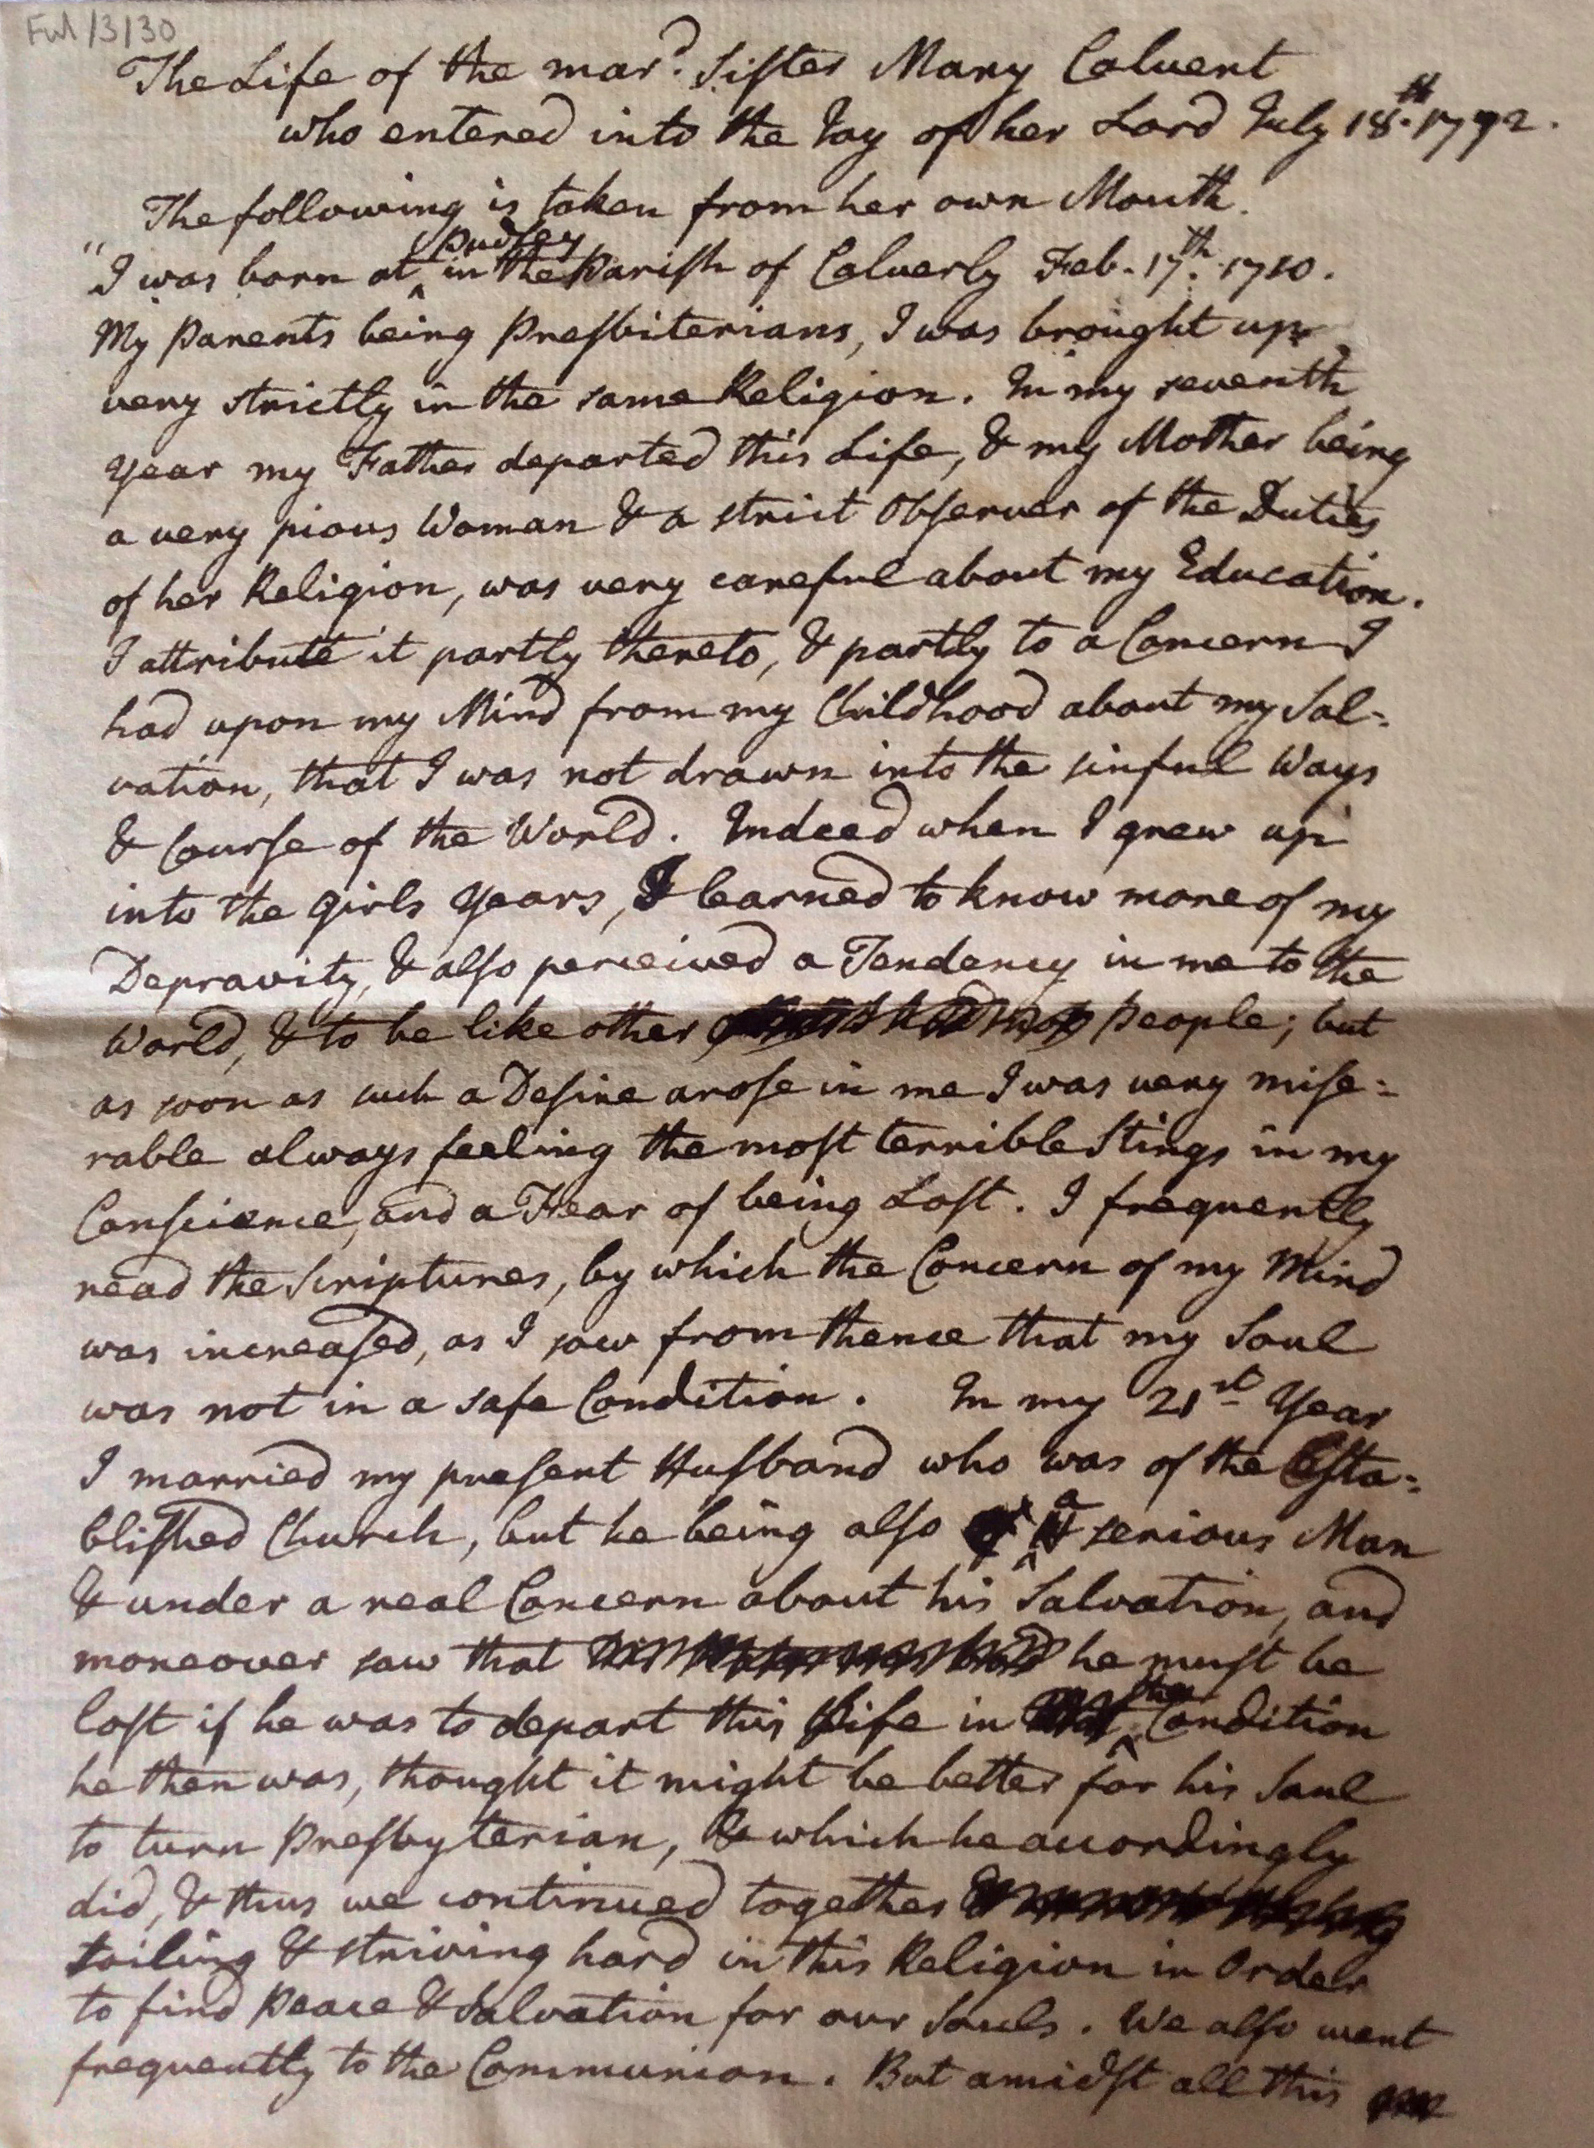 Ful/3/30
The Life of the mard. Sister Mary Calvert
who entered into the Joy of her Lord July 18.th 1792.
The following is taken from her own Mouth.
"I was born at Pudsey in the Parish of Calverly Feb. 17th. 1710.
My Parents being Presbiterians, I was brought up
very strictly in the same Religion. In my seventh
year my Father departed this Life, & my Mother being
a very pious Woman & a strict Observer of the Duties
of her Religion, was very careful about my Education.
I attribute it partly thereto, & partly to a Concern I
had upon my Mind from my Childhood about my Sal=
vation, that I was not drawn into the sinful Ways
& Course of the World. Indeed when I grew up
into the girls years, I learned to know more of my
Depravity, & also perceived a Tendency in me to the
World, & to be like other People; but
as soon as such a Desire arose in me I was very mise=
rable always feeling the most terrible Stings in my
Conscience, and a Fear of being Lost. I frequently
read the Scriptures, by which the Concern of my Mind
was increased, as I saw from thence that my Soul
was not in a safe Condition. In my 21st Year
I married my present Husband who was of the Esta=
blished Church, but he being also a serious Man
& under a real Concern about his Salvation, and
moreover saw that he must be
lost if he was to depart this Life in the Condition
he then was, thought it might be better for his Soul
to turn Presbyterian, which he accordingly
did, & thus we continued together
toiling & striving hard in this Religion in Order
to find Peace & Salvation for our Souls. We also went
frequently to the Communion. But amidst all this